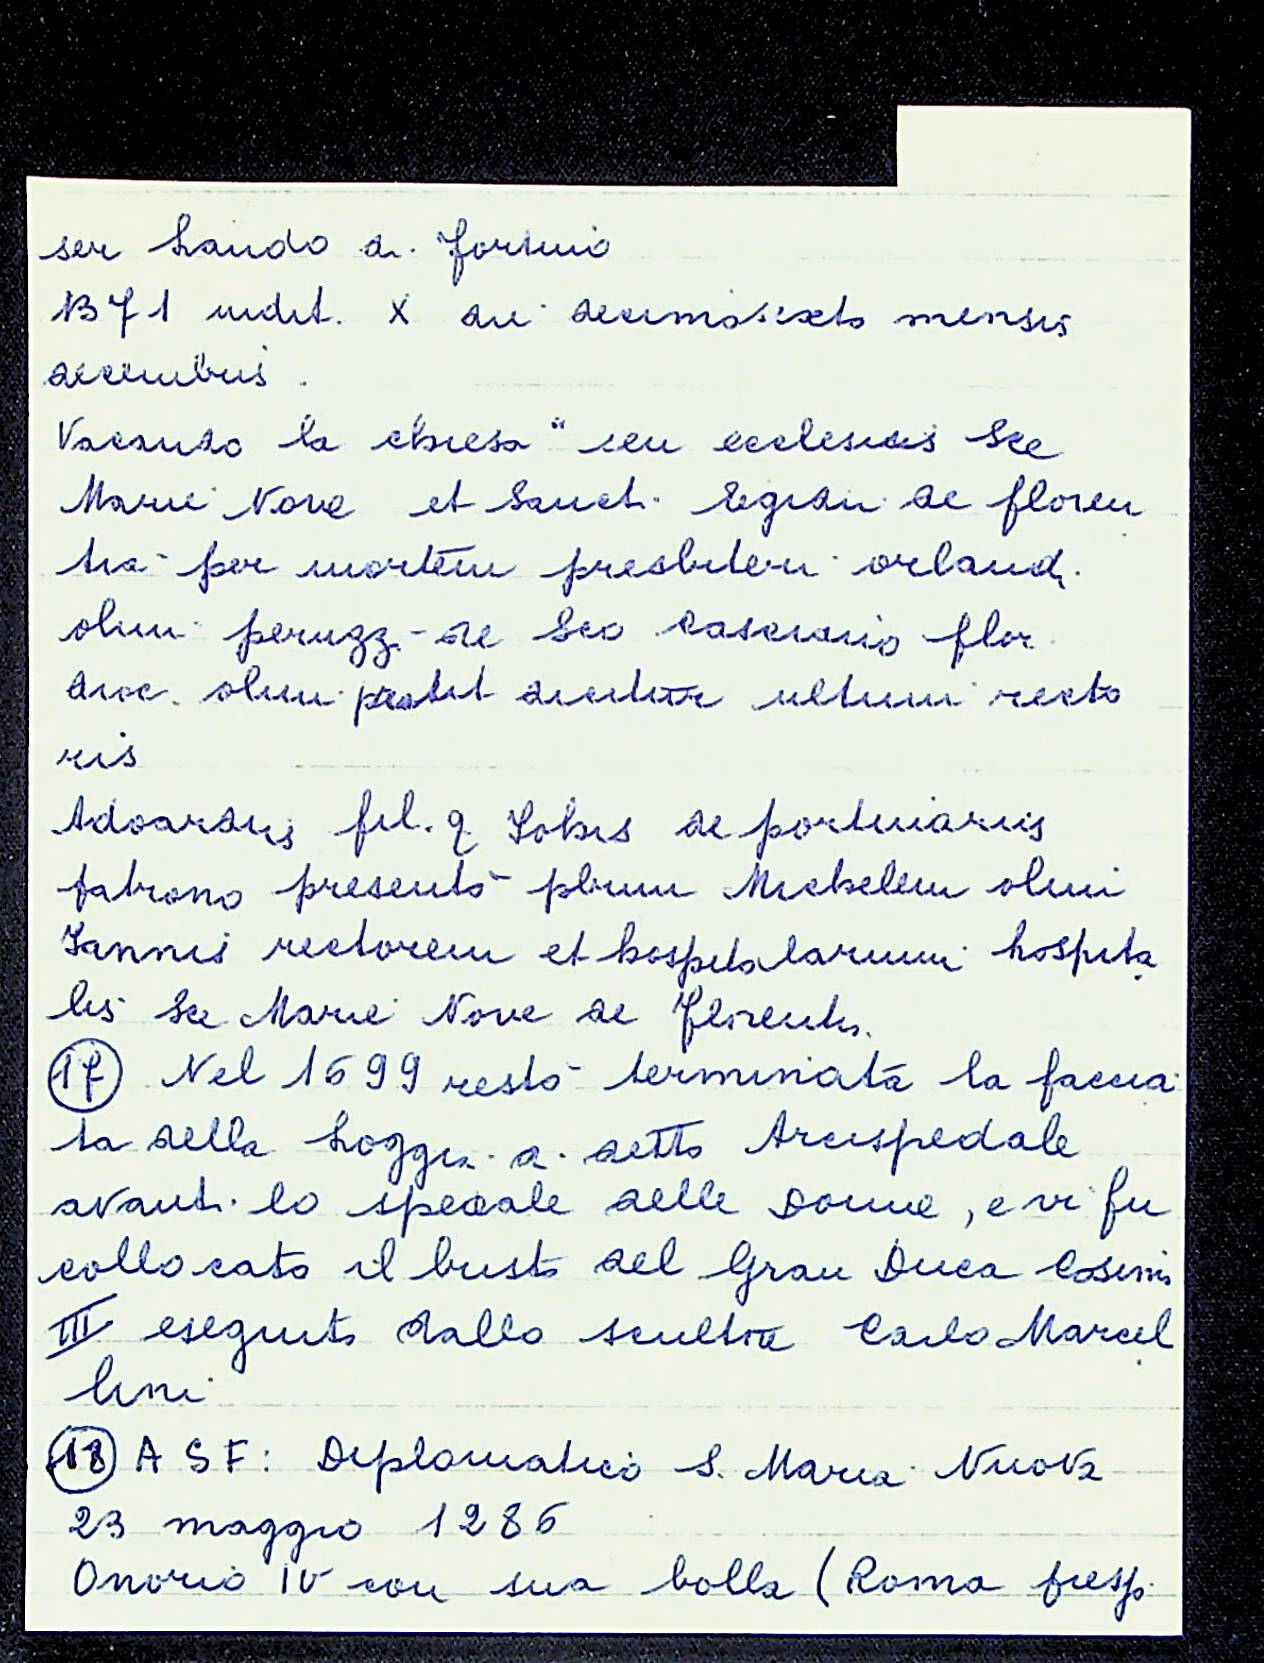 ser Lando di Fortino
1371 indit. X die decimosixto mensis
decembris.
Vacando la chiesa "seu ecclesiis Sce
Marie Nove et Sancti Egidii de floren
tia per mortem presbiteri orlandi
olim peruzzi de Sco Casciano flor.
dioc. olim dictur ultimi recto
ris
Adoardus fil. q Johis de portinariis
patrono presentò pbrum Michelem olim
Iannis rectorem et hospitalarium hospita
lis Sce Marie Nove de Florentia.
17 Nel 1699 restò terminata la faccia
ta della Loggia di detto Arcispedale
avanti lo spedale delle Donne, e vi fu
collocato il busto del Gran Duca Cosimo
III eseguito dallo scultore Carlo Marcel
lini
18 ASF: Diplomatico S. Maria Nuova
23 maggio 1286
Onorio IV con sua bolla (Roma presso